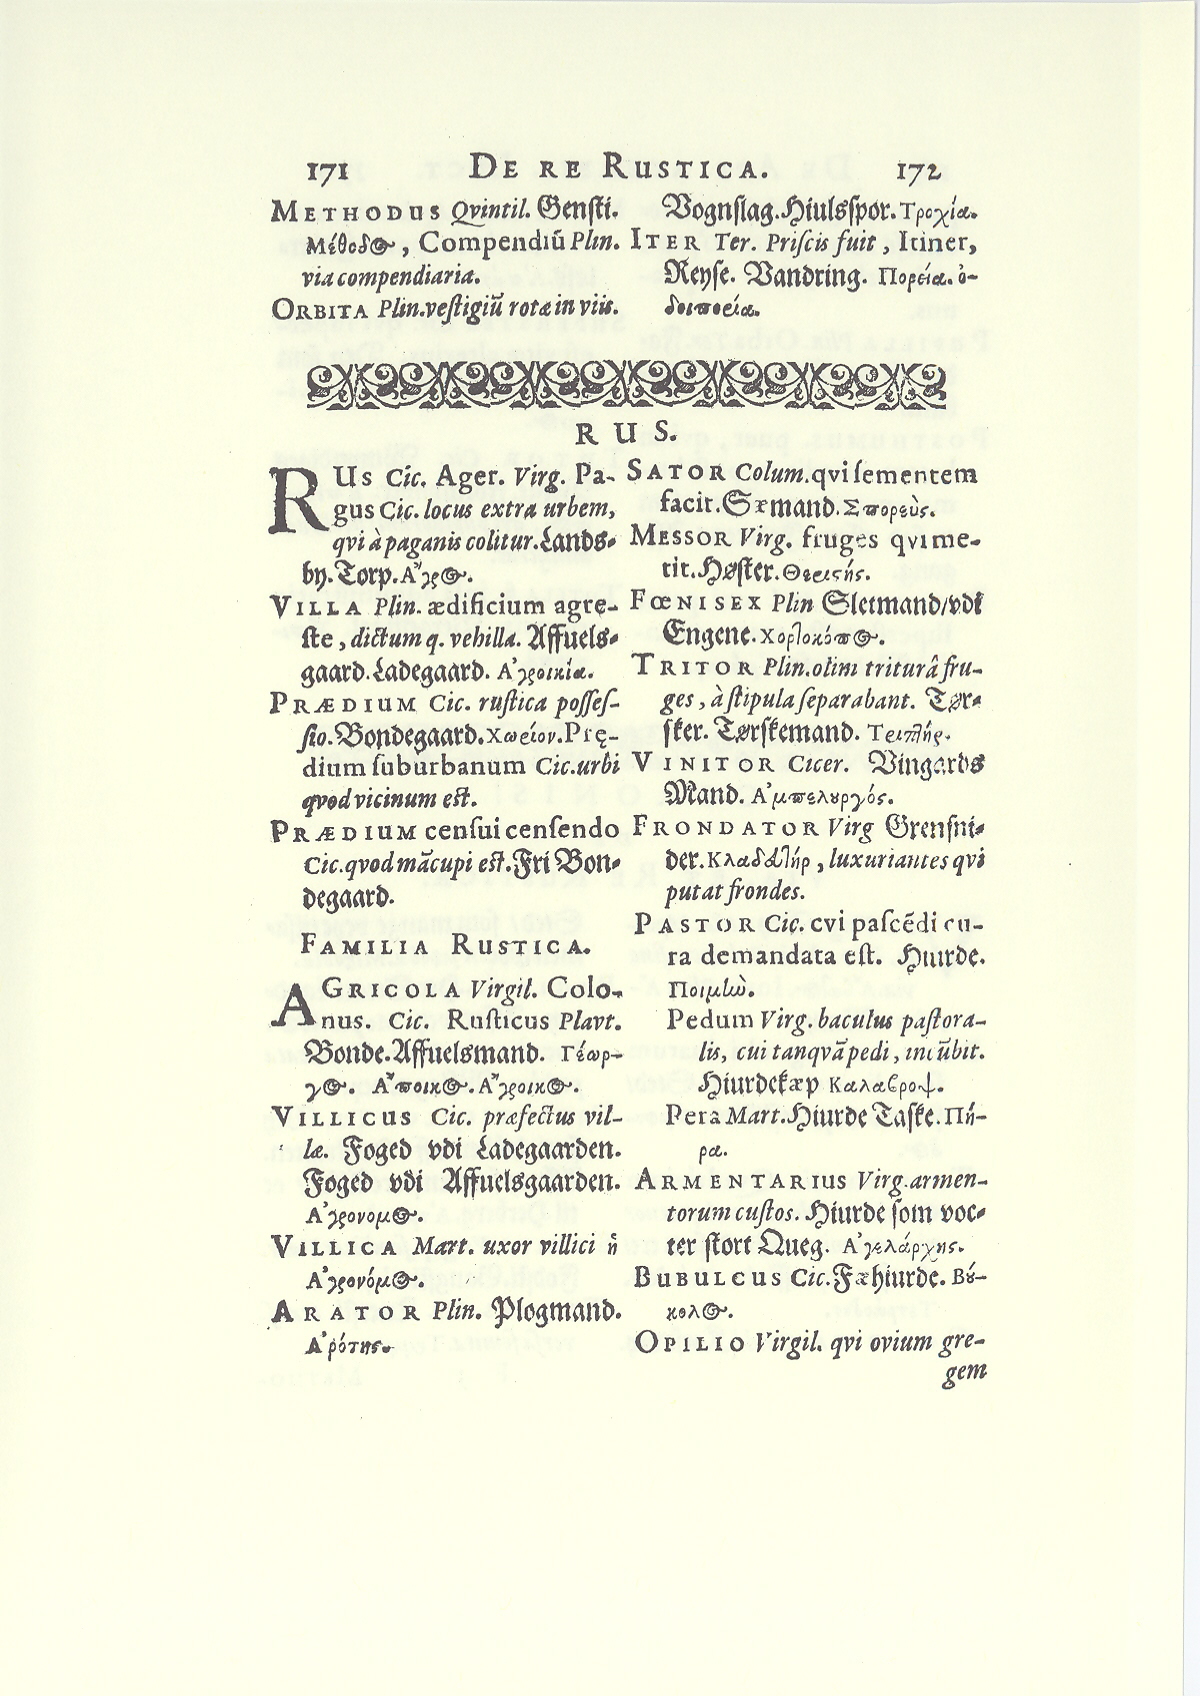 171 DE RE RUSTICA. 172
METHODUS Qvintil. Gensti.
Μέθοδος, Compendiũ Plin.
via compendiaria.
ORBITA Plin. vestigiũ rotæ in viis.
Vognslag. Hiulsspor. Τροχία.
ITER Ter. Priscis fuit, Itiner,
Reyse. Vandring. Πορεία. ὁ-
δοιπορεία.
RUS.
RUs Cic. Ager. Virg. Pa-
gus Cic. locus extra urbem,
qvi à paganis colitur. Lands-
by. Torp. Ἀγρος.
VILLA Plin. ædificium agre-
ste, dictum q. vehilla. Affuels-
gaard. Ladegaard. Ἀγροικία.
PRÆDIUM Cic. rustica posses-
sio. Bondegaard. Χωρίον. Prę-
dium suburbanum Cic. urbi
qvod vicinum est.
PRÆDIUM censui censendo
Cic. qvod mãcupi est. Fri Bon-
degaard.
FAMILIA RUSTICA.
AGRICOLA Virgil. Colo-
nus. Cic. Rusticus Plavt.
Bonde. Affuelsmand. Γέωρ-
γος. Ἄποικος. Ἄγροικος.
VILLICUS Cic. præfectus vil-
læ. Foged vdi Ladegaarden.
Foged vdi Affuelsgaarden.
Ἀγρονομος.
VILLICA Mart. uxor villici ἡ
Ἀγρονόμος.
ARATOR Plin. Plogmand.
Ἀρότης.
SATOR Colum. qvi sementem
facit. Sæmand. Σπορεὺς.
MESSOR Virg. fruges qvi me-
tit. Høster. Θεριστής.
FŒNISEX Plin Sletmand/vdi
Engene. Χορτοκόπος.
TRITOR Plin. olim triturâ fru-
ges, à stipula separabant. Tør-
sker. Tørskemand.
VINITOR Cicer. Vingards
Mand. Ἀμπελουργός.
FRONDATOR Virg Grensni-
der. Κλαδευτήρ, luxuriantes qvi
putat frondes.
PASTOR Cic. cvi pascẽdi cu-
ra demandata est. Hiurde.
Ποιμὼ.
Pedum Virg. baculus pastora-
lis, cui tanqvã pedi, incũbit.
Hiurdekæp Καλαβροψ.
Pera Mart. Hiurde Taske. Πή-
ρα.
ARMENTARIUS Virg. armen-
torum custos. Hiurde som voc-
ter stort Queg. Ἀγελάρχης.
BUBULCUS Cic. Fæhiurde. Βού-
κολος.
OPILIO Virgil. qvi ovium gre-
gem